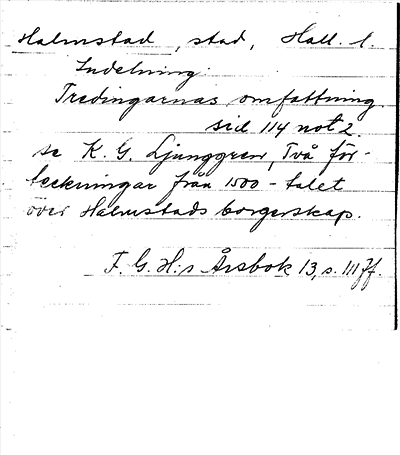 Halmstad, stad, Hall. l.
Indelning.
Tredingarnas omfattning
sid 114 not 2.
se K. G. Ljunggren, Två för-
teckningar från 1500-talet
över Halmstads borgerskap.
F. G. H:s Årsbok 13, s. 111 ff.